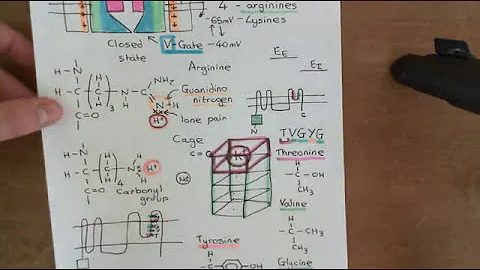 4 - arginines
-65mV - Lysines
Closed state
V-Gate -40mV
E_E
E_I
Arginine
H - N
NH₂
H - C - ( C )₃ - N - C
H
H
H
N - H
Guanidino nitrogen
C=O
H⁺
lone pair
TVGYG
Cage
C = O
K⁺
Threonine
H
H - C - ( C )₄ - N
H
H⁺
C=O
Carbonyl group
Na⁺
H
- C - OH
CH₃
Valine
H
- C - CH₃
CH₃
N
Tyrosine
H
- C -
OH
Glycine